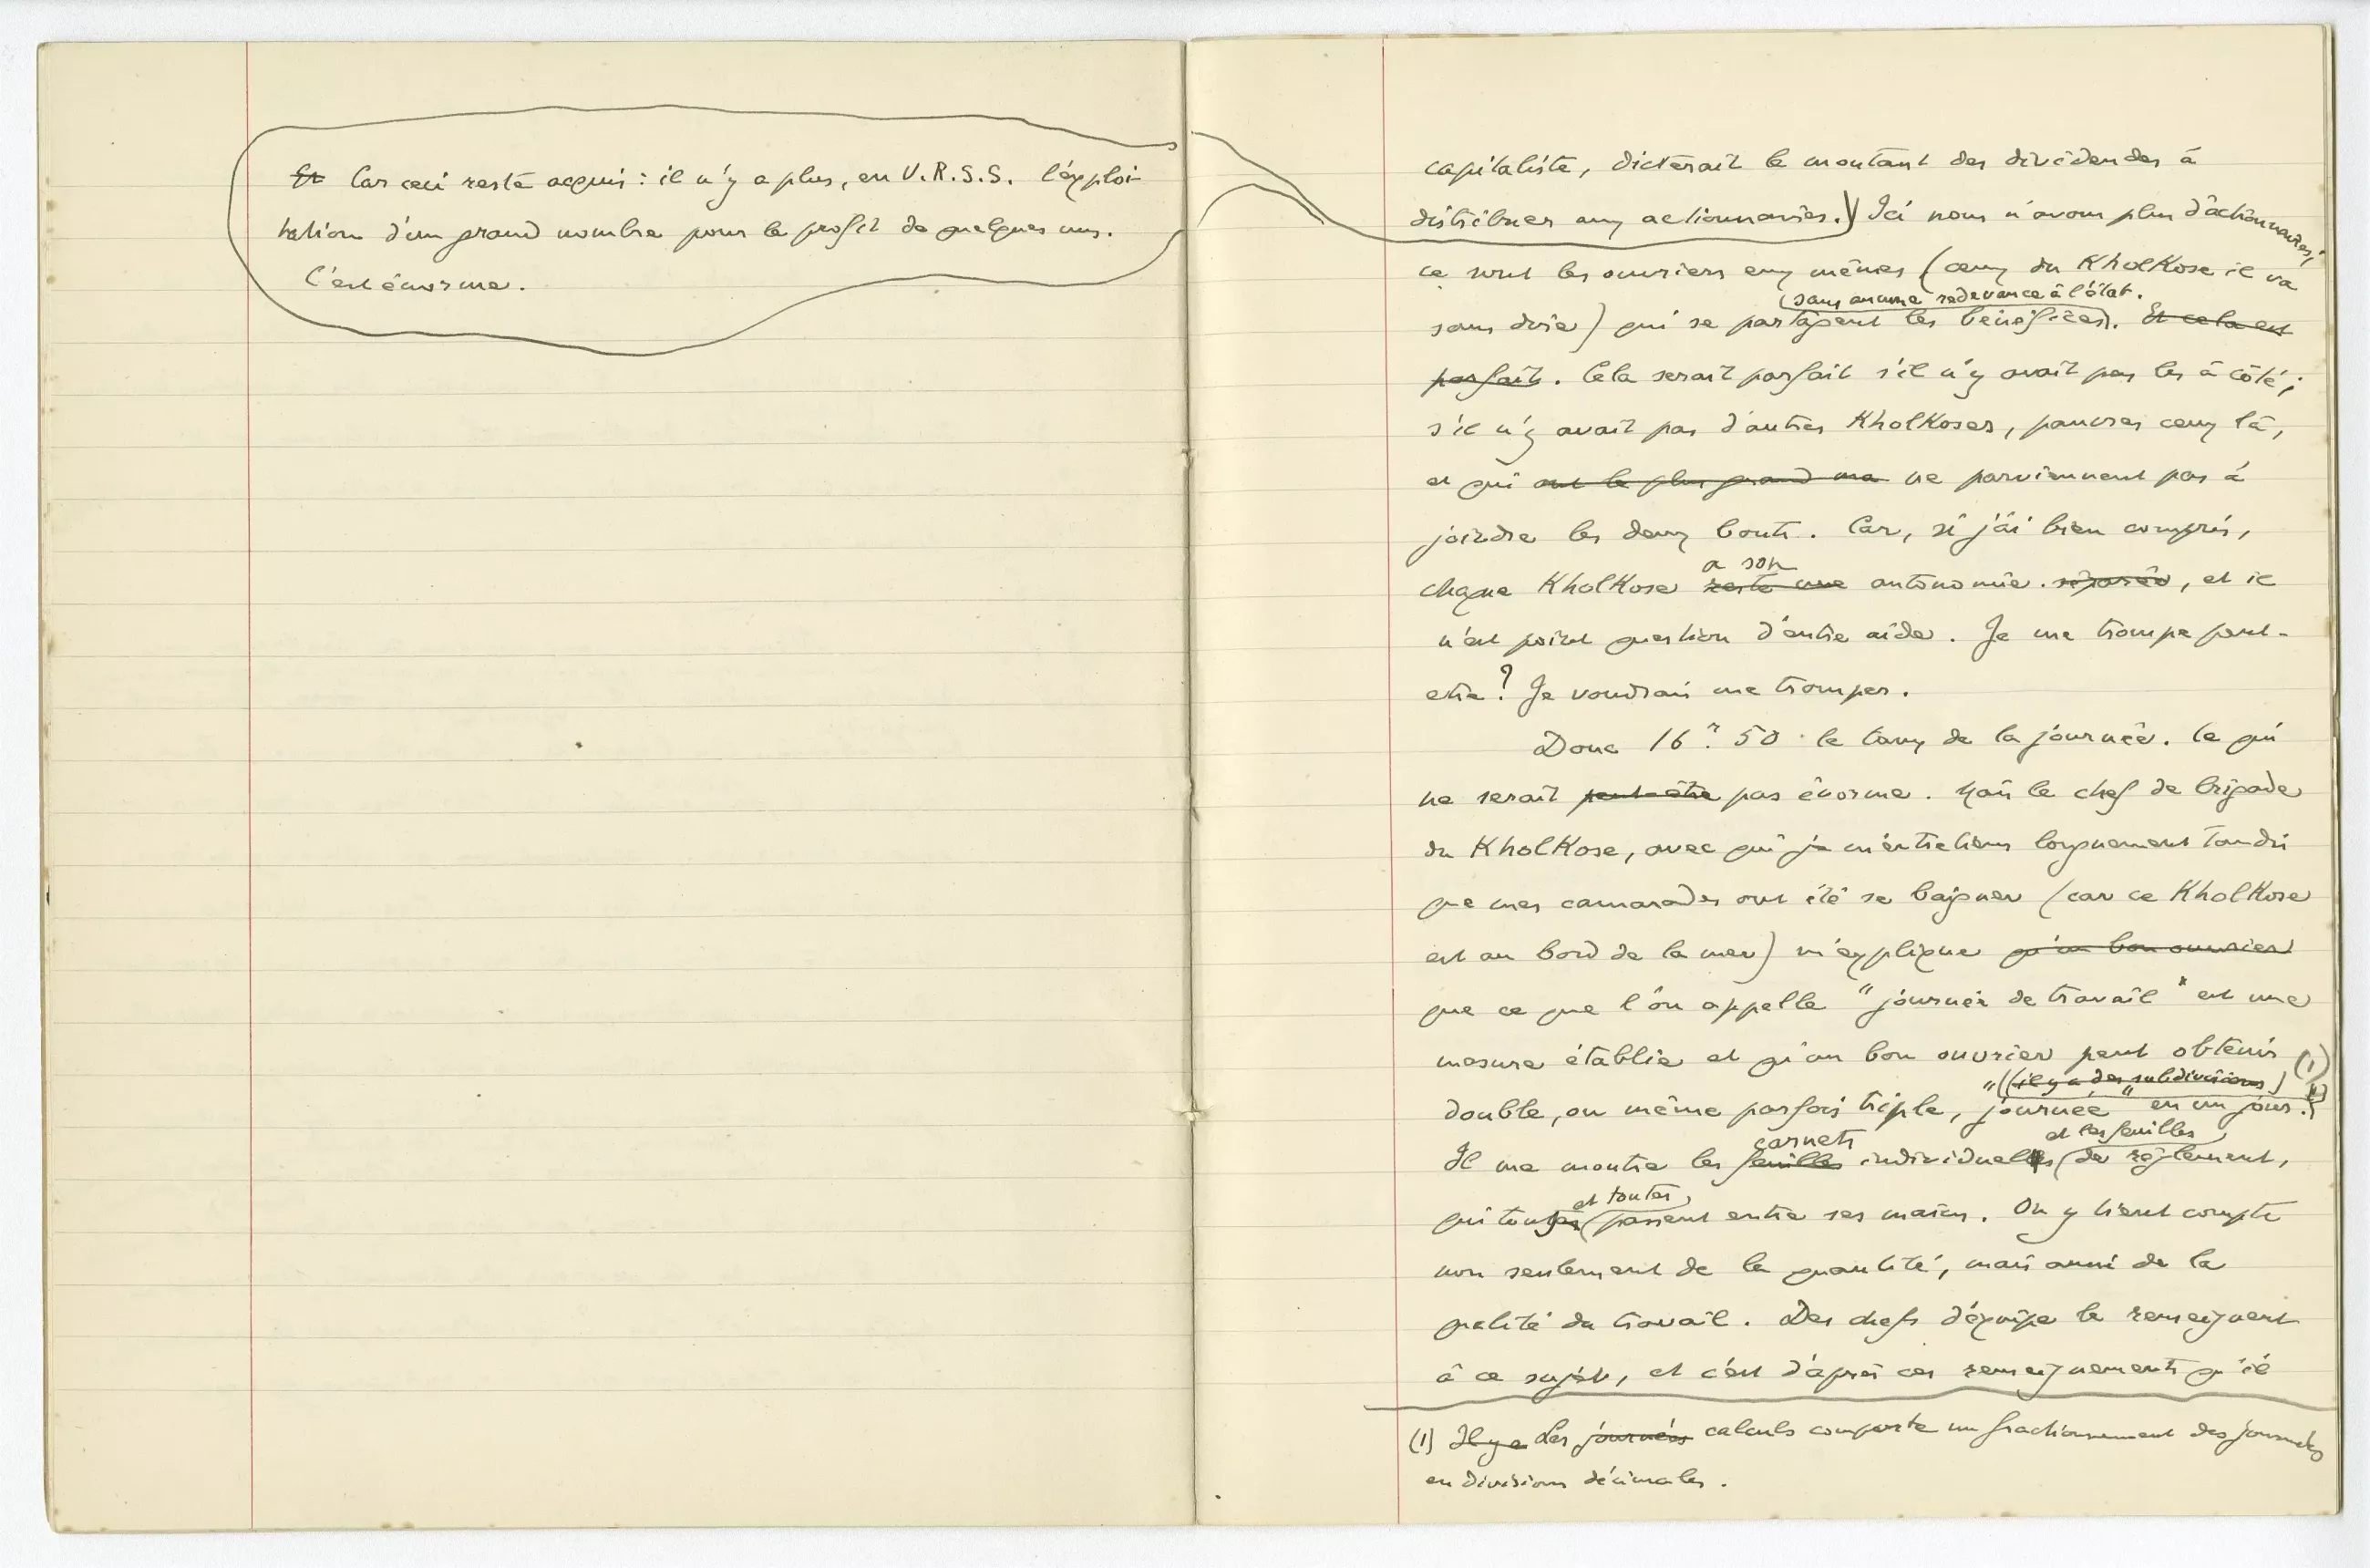 Et Car ceci reste acquis : il n'y a plus, en U.R.S.S. l'exploi-
tation d'un grand nombre pour le profit de quelques uns.
C'est énorme.
capitaliste, dicterait le montant des dividendes à
distribuer aux actionnaires.) Ici nous n'avons plus d'actionnaires;
ce sont les ouvriers eux mêmes (ceux du KholKose il va
(sans aucune redevance à l'état.
sans dire) qui se partagent les bénéfices). Et cela est
parfait. Cela serait parfait s'il n'y avait pas les à côté;
s'il n'y avait pas d'autres KholKoses, pauvres ceux là,
et qui ont le plus grand ma ne parviennent pas à
joindre les deux bouts. Car, si j'ai bien compris,
a son
chaque KholKose reste une autonomie. séparée, et il
n'est point question d'entre aide. Je me trompe peut-
etre? Je voudrais me tromper.
Donc 16 r. 50 le taux de la journée. Ce qui
ne serait peut-être pas énorme. Mais le chef de brigade
du KholKose, avec qui je m'entretiens longuement tandis
que mes camarades ont été se baigner (car ce KholKose
est au bord de la mer) m'explique qu'un bon ouvrier
que ce que l'on appelle "journée de travail" est une
mesure établie et qu'un bon ouvrier peut obtenir
(il y a des subdivisions) (1)
double, ou même parfois triple, "journée" en un jour.
carnets et les feuilles
Il me montre les feuilles individuels de règlement,
et toutes
qui tous passent entre ses mains. On y tient compte
non seulement de la quantité, mais aussi de la
qualité du travail. Des chefs d'équipe le renseignent
à ce sujet, et c'est d'après ces renseignements qu'il
(1) Il y a Les journées calculs comporte un fractionnement des journées
en divisions décimales.